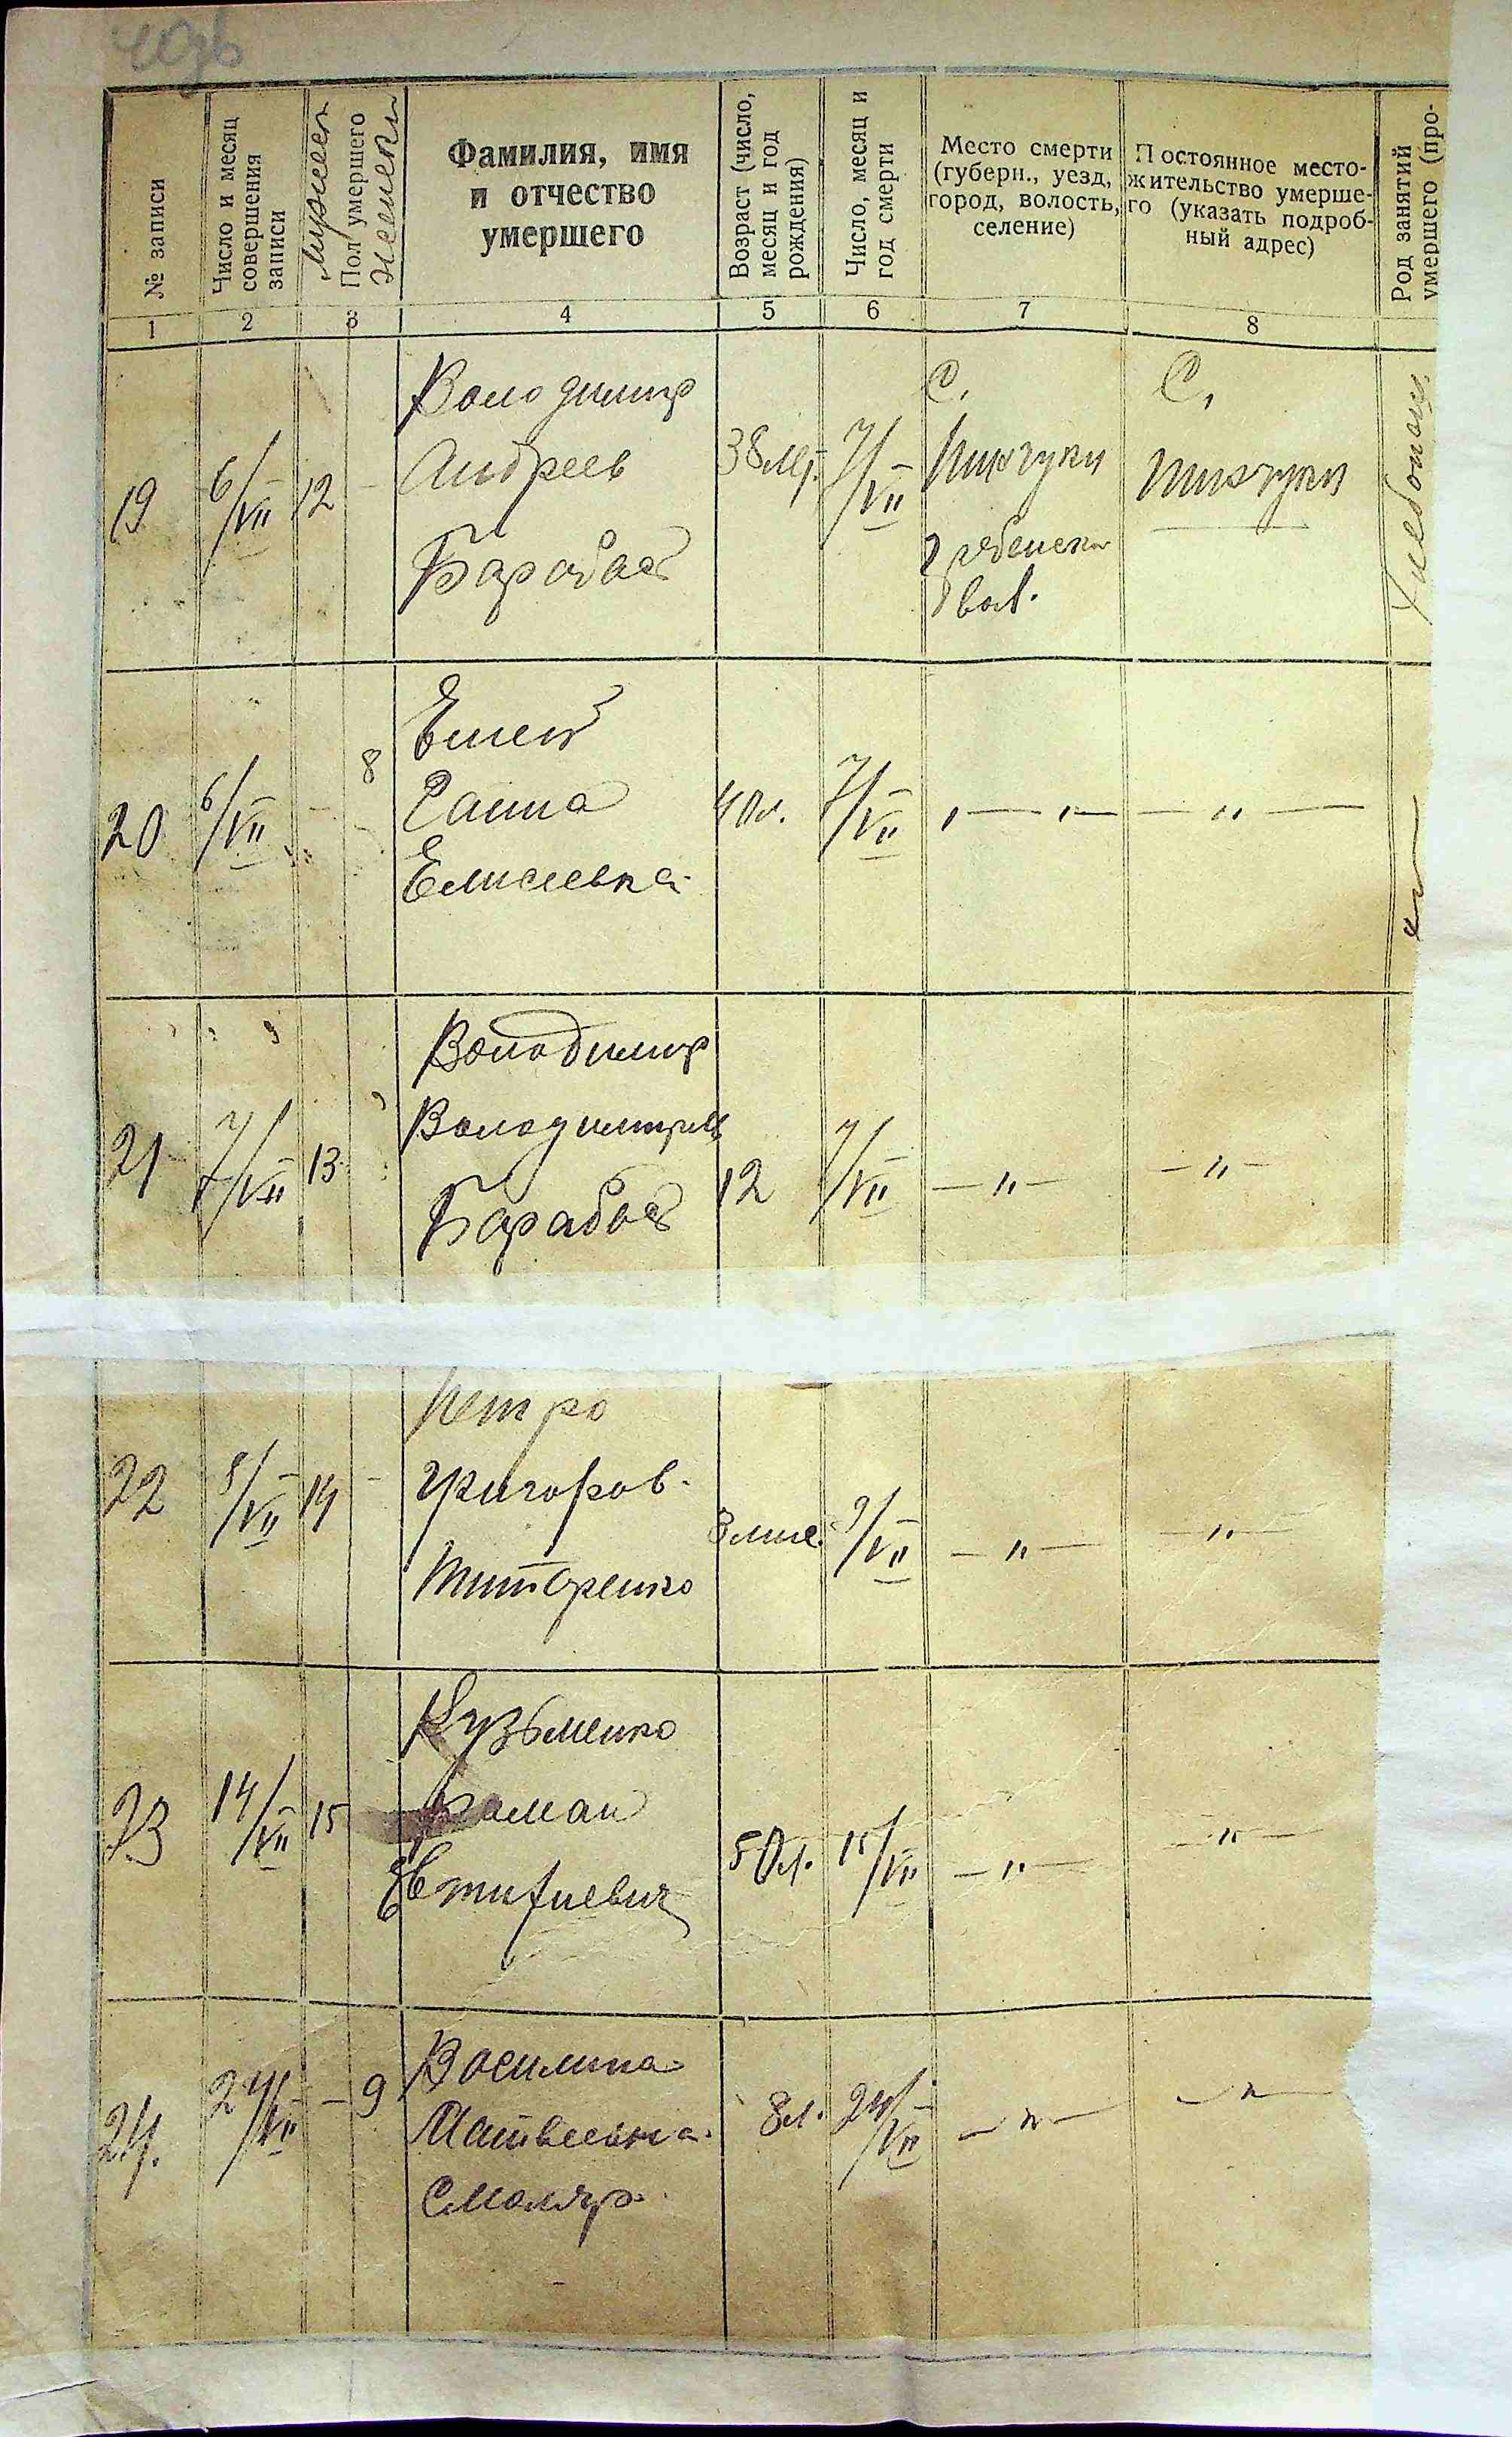 № записи
Число и месяц совершения записи
мужеск
Пол умершего
женски
Фамилия, имя
и отчество
умершего
Возраст (число, месяц и год рождения)
Число, месяц и год смерти
Место смерти
(губерн., уезд,
город, волость,
селение)
Постоянное место-
жительство умерше-
го (указать подроб-
ный адрес)
Род занятий
умершего (про-
1 2 3 4 5 6 7 8
19 6/VII 12 -
Володимир
Андреев
Барабаш
38 лет. 7/VII
С.
Пинчуки
Гребенсков
вол.
С.
Пинчуки
Хлебопаш
20 6/VII - 8
Ганна
Елисеевна
40 л. 7/VII " " - " -
21 7/VII 13
Володимир
Володимиров
Барабаш
12 7/VII - " - - " -
22 8/VII 14 -
Петро
Григоров.
Титаренко
9/VII - " - - " -
23 14/VII 15
Кузьменко
Роман
Евтифиевич
50 л. 15/VII - " - - " -
24. 24/VII - 9
Василина
Матвеевна
Смоляр
8 л. 24/VII - " - - " -